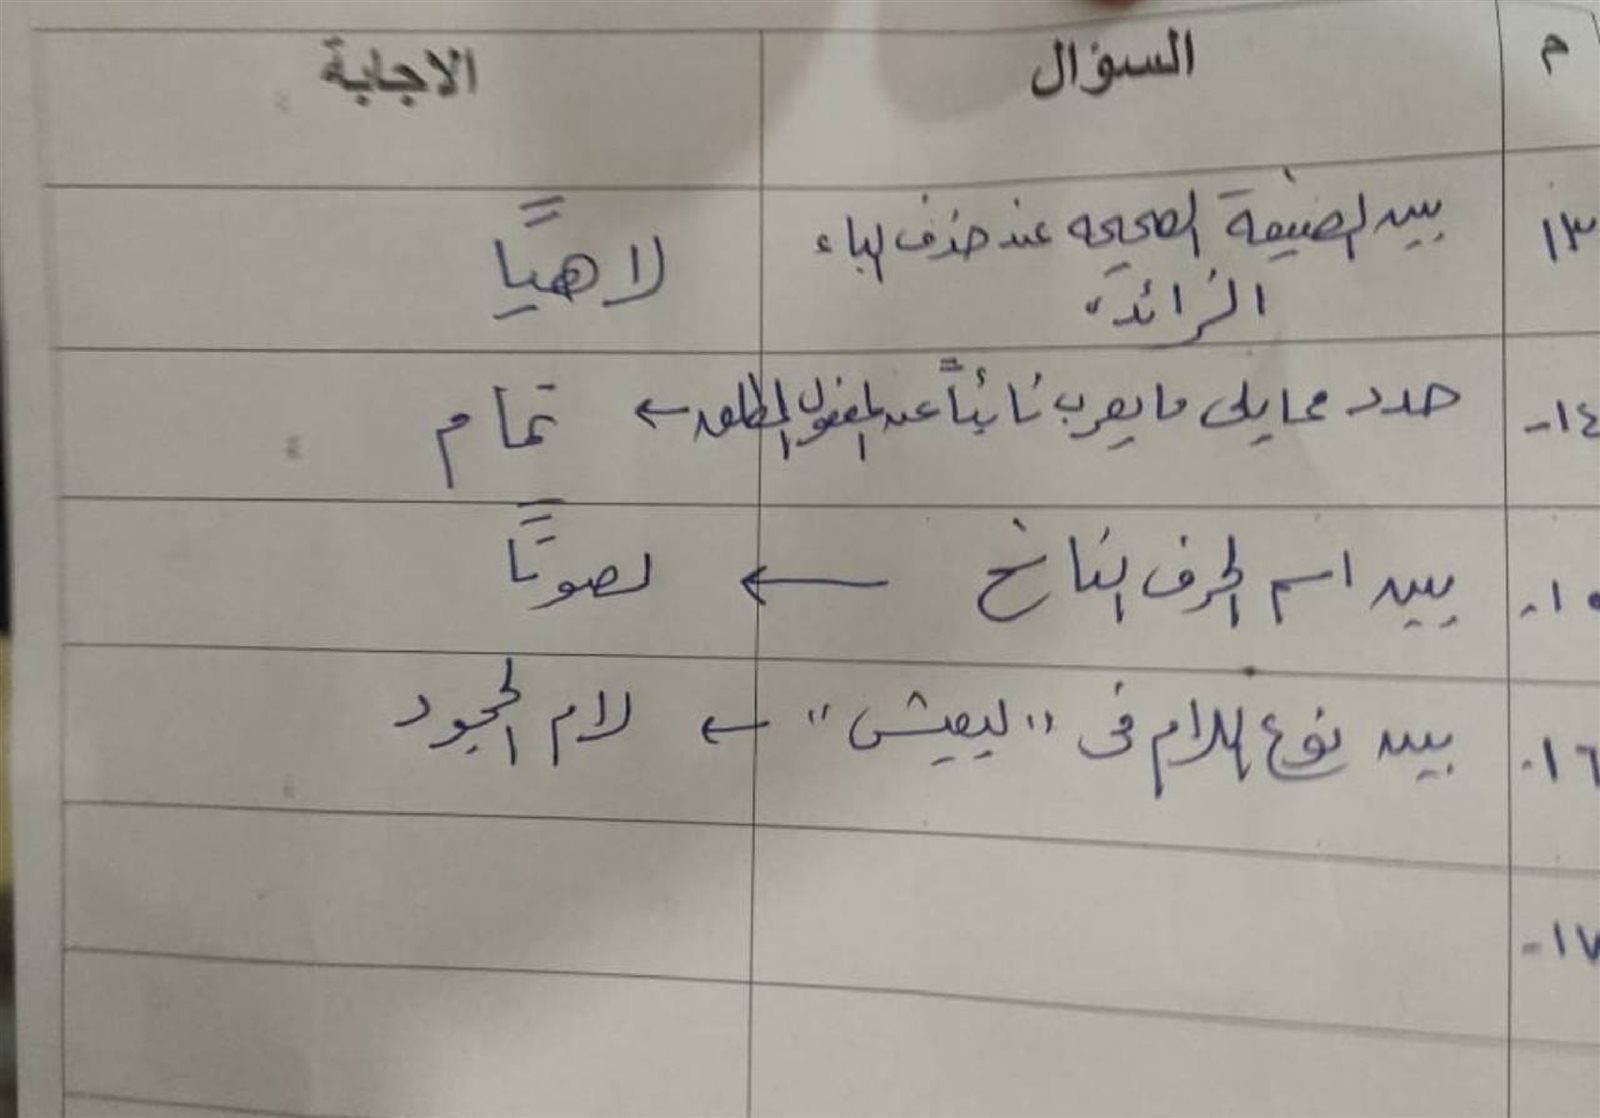 م السؤال الاجابة
١٣ بين الصيغة الصحيحه عند حذف الباء لاهيًا
الزائده
١٤- حدد مما يلى ما يعرب نائبًا عن المفعول المطلق ← تمام
١٥- بين اسم الحرف الناسخ ← لصوتًا
١٦- بين نوع اللام فى "ليعيش" ← لام الجحود
١٧-